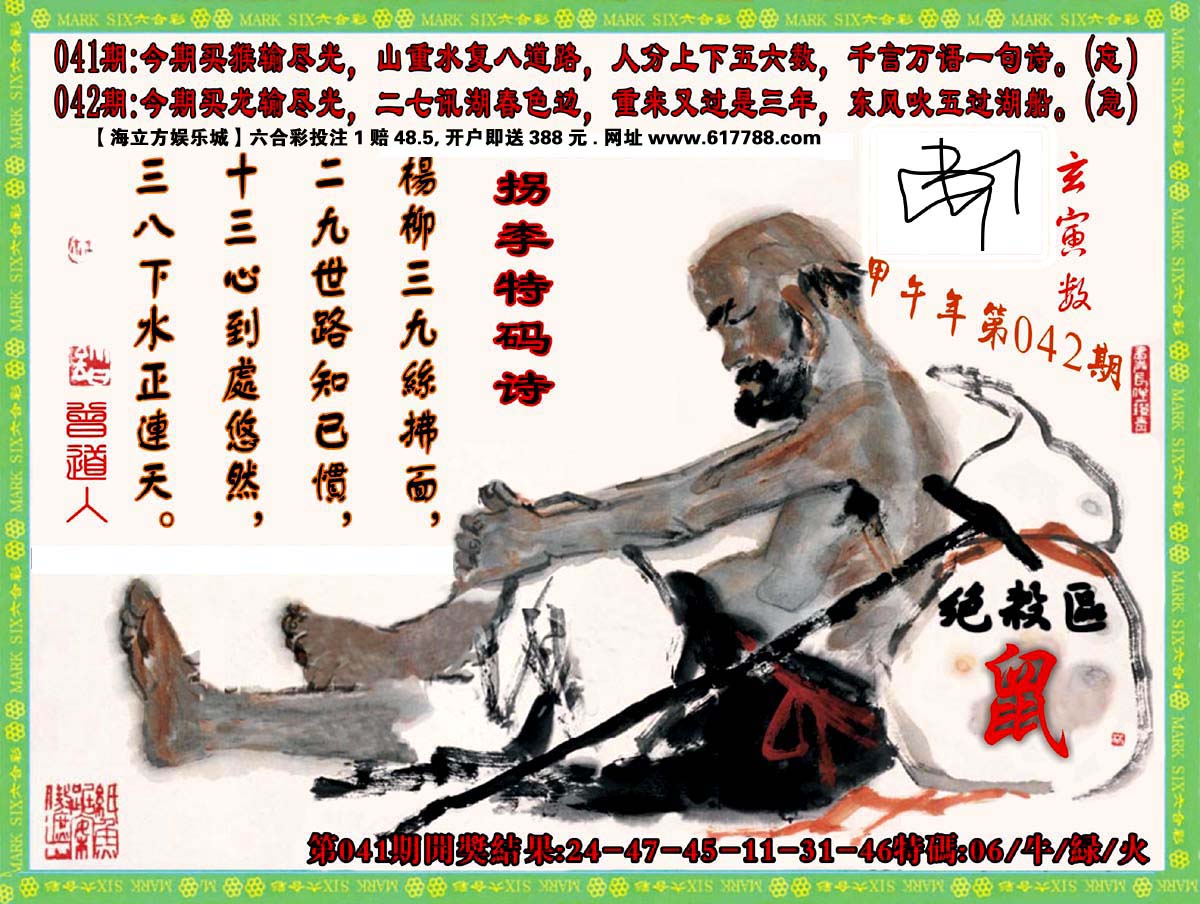 041期:今期买猴输尽光，山重水复八道路，人分上下五六数，千言万语一句诗。(忘)
042期:今期买龙输尽光，二七讯湖春色边，重来又过是三年，东风吹五过湖船。(急)
【海立方娱乐城】六合彩投注1赔48.5,开户即送388元.网址www.617788.com
玄寅数
甲午年第042期
拐李特码诗
楊柳三九絲拂面，
二九世路知已慣，
十三心到處悠然，
三八下水正連天。
曾道人
绝殺区
鼠
第041期開獎結果:24-47-45-11-31-46特碼:06/牛/緑/火
MARK SIX六合彩